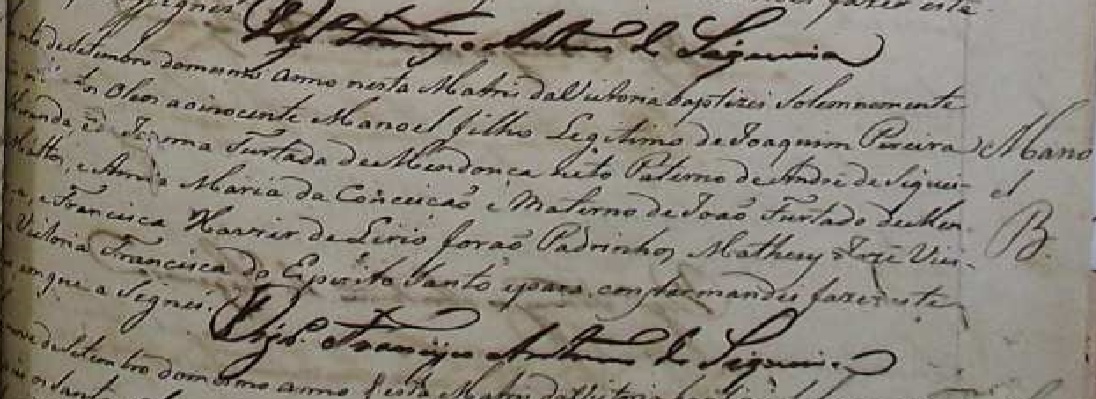 fazer este
Assignei
Vigr.o Francisco Antonio de Siqueira
de Setembro do mesmo anno nesta Matris da Victoria baptizei Solemnemente
os Santos Oleos ao inocente Manoel filho Legitimo de Joaquim Pereira
Miranda e Joanna Furtada de Mendonca neto Paterno de André de Siquei-
Mattos, e Maria da Conceicaõ e Materno de Joaõ Furtado de Men-
e Francisca Xavier de Lirio foraõ Padrinhos Matheus Joze Viei-
Victoria Francisca do Espirito Santo e para constar mandei fazer este
em que a Signei.
Vigr.o Francisco Antonio de Siqueira
Mano
el
B.
de Setembro do mesmo anno nesta Matris da Victoria
os Santos